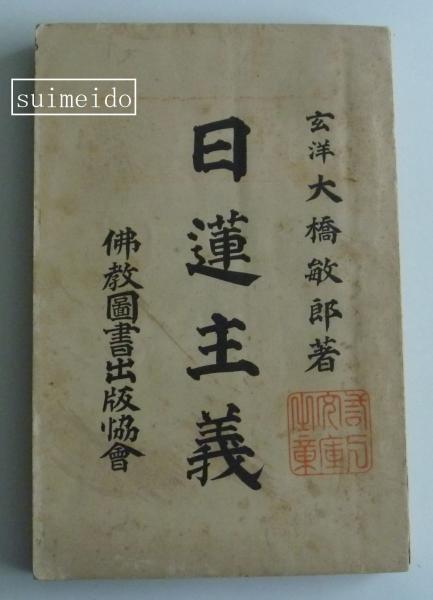 suimeido
玄洋 大橋敏郎著
日蓮主義
佛教圖書出版協會